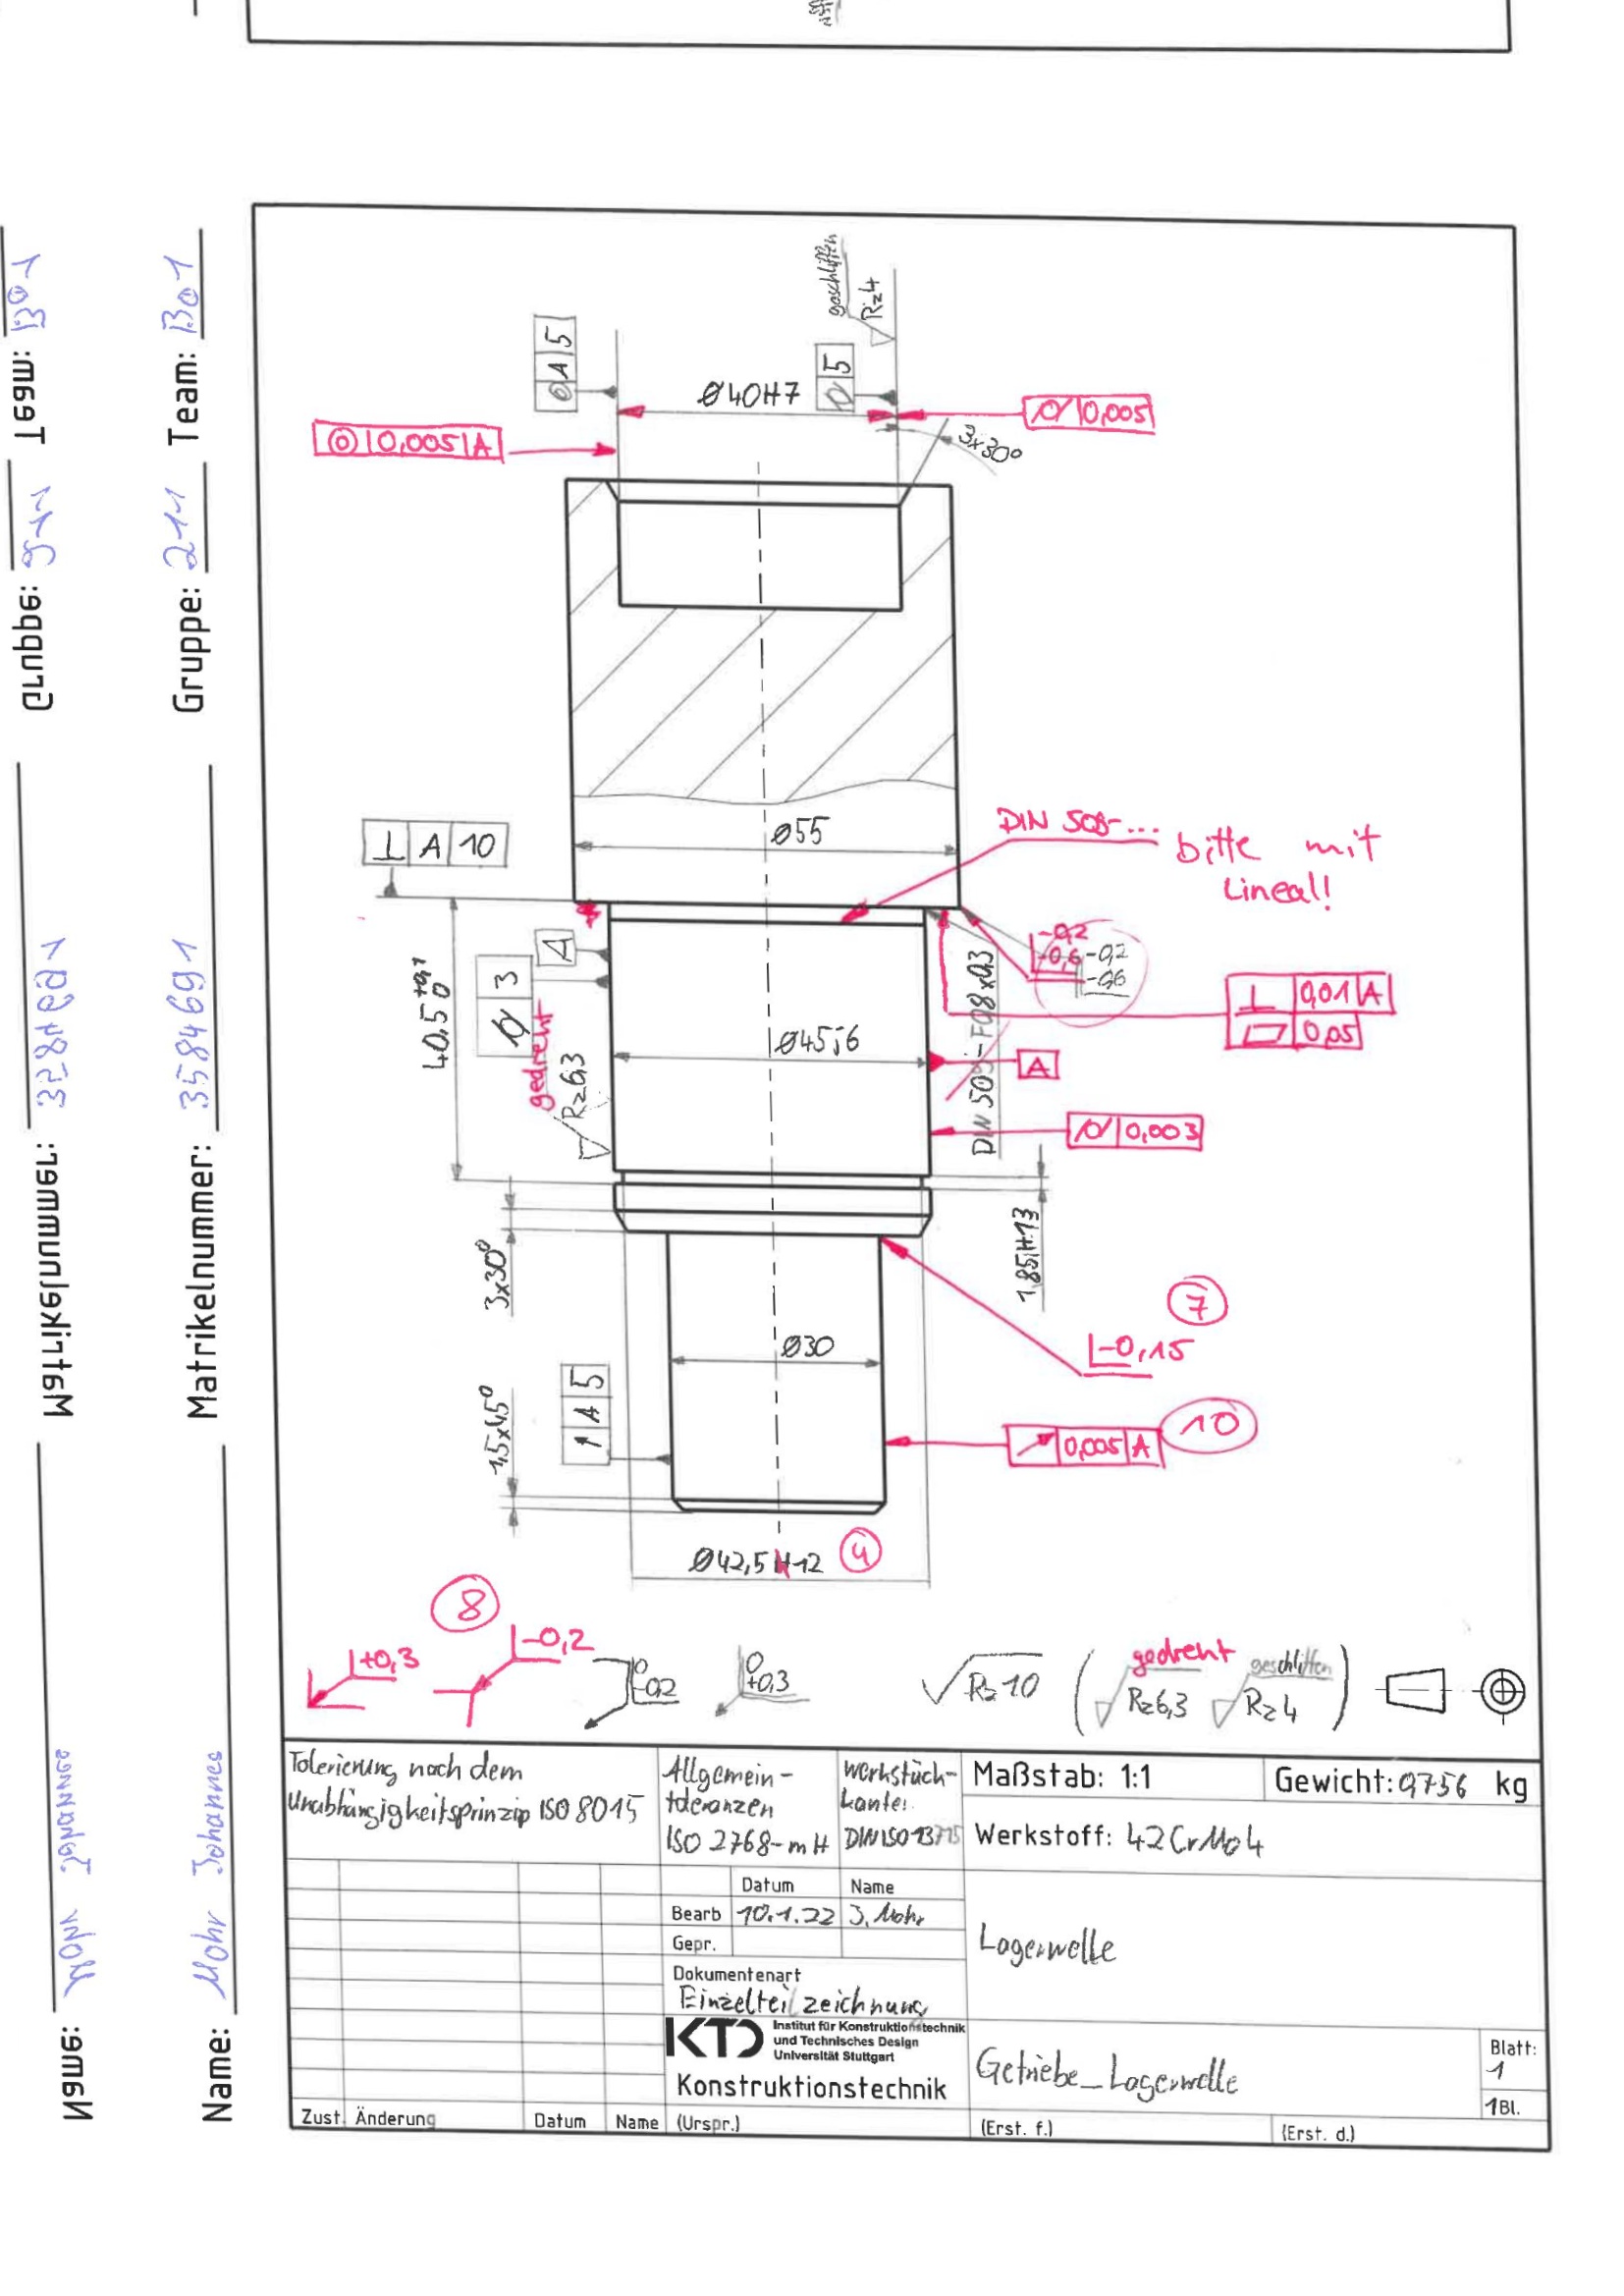 Team: B01
Gruppe: 211
Matrikelnummer: 3584691
Name: Mohr Johannes
geschliffen
Rz4
A 5
5
Ø40H7
0,005 A
0,005
3x30°
DIN 509-...
bitte mit
Lineal!
Ø55
⊥ A 10
-0,2
-0,6
-0,2
-0,6
⊥ 0,01 A
0,05
A
3
40,5 +0,1 0
gedreht
Rz6,3
Ø45j6
DIN 509-F0,8x0,3
A
0,003
3x30°
1,85H13
7
-0,15
Ø30
A 5
1,5x45°
0,005 A
10
Ø42,5H12
4
8
+0,3
-0,2
0
-0,2
0
+0,3
Rz10
gedreht
Rz6,3
geschliffen
Rz4
Tolerierung nach dem
Unabhängigkeitsprinzip ISO 8015
Allgemein-
toleranzen
ISO 2768-mH
Werkstück-
kanten
DIN ISO 13715
Maßstab: 1:1
Gewicht: 0,756 kg
Werkstoff: 42CrMo4
Datum Name
Bearb 10.1.22 J. Mohr
Gepr.
Lagerwelle
Dokumentenart
Einzelteilzeichnung
KTD Institut für Konstruktionstechnik
und Technisches Design
Universität Stuttgart
Konstruktionstechnik
Getriebe_Lagerwelle
Blatt:
1
1Bl.
Zust. Änderung Datum Name (Urspr.) (Erst. f.) (Erst. d.)